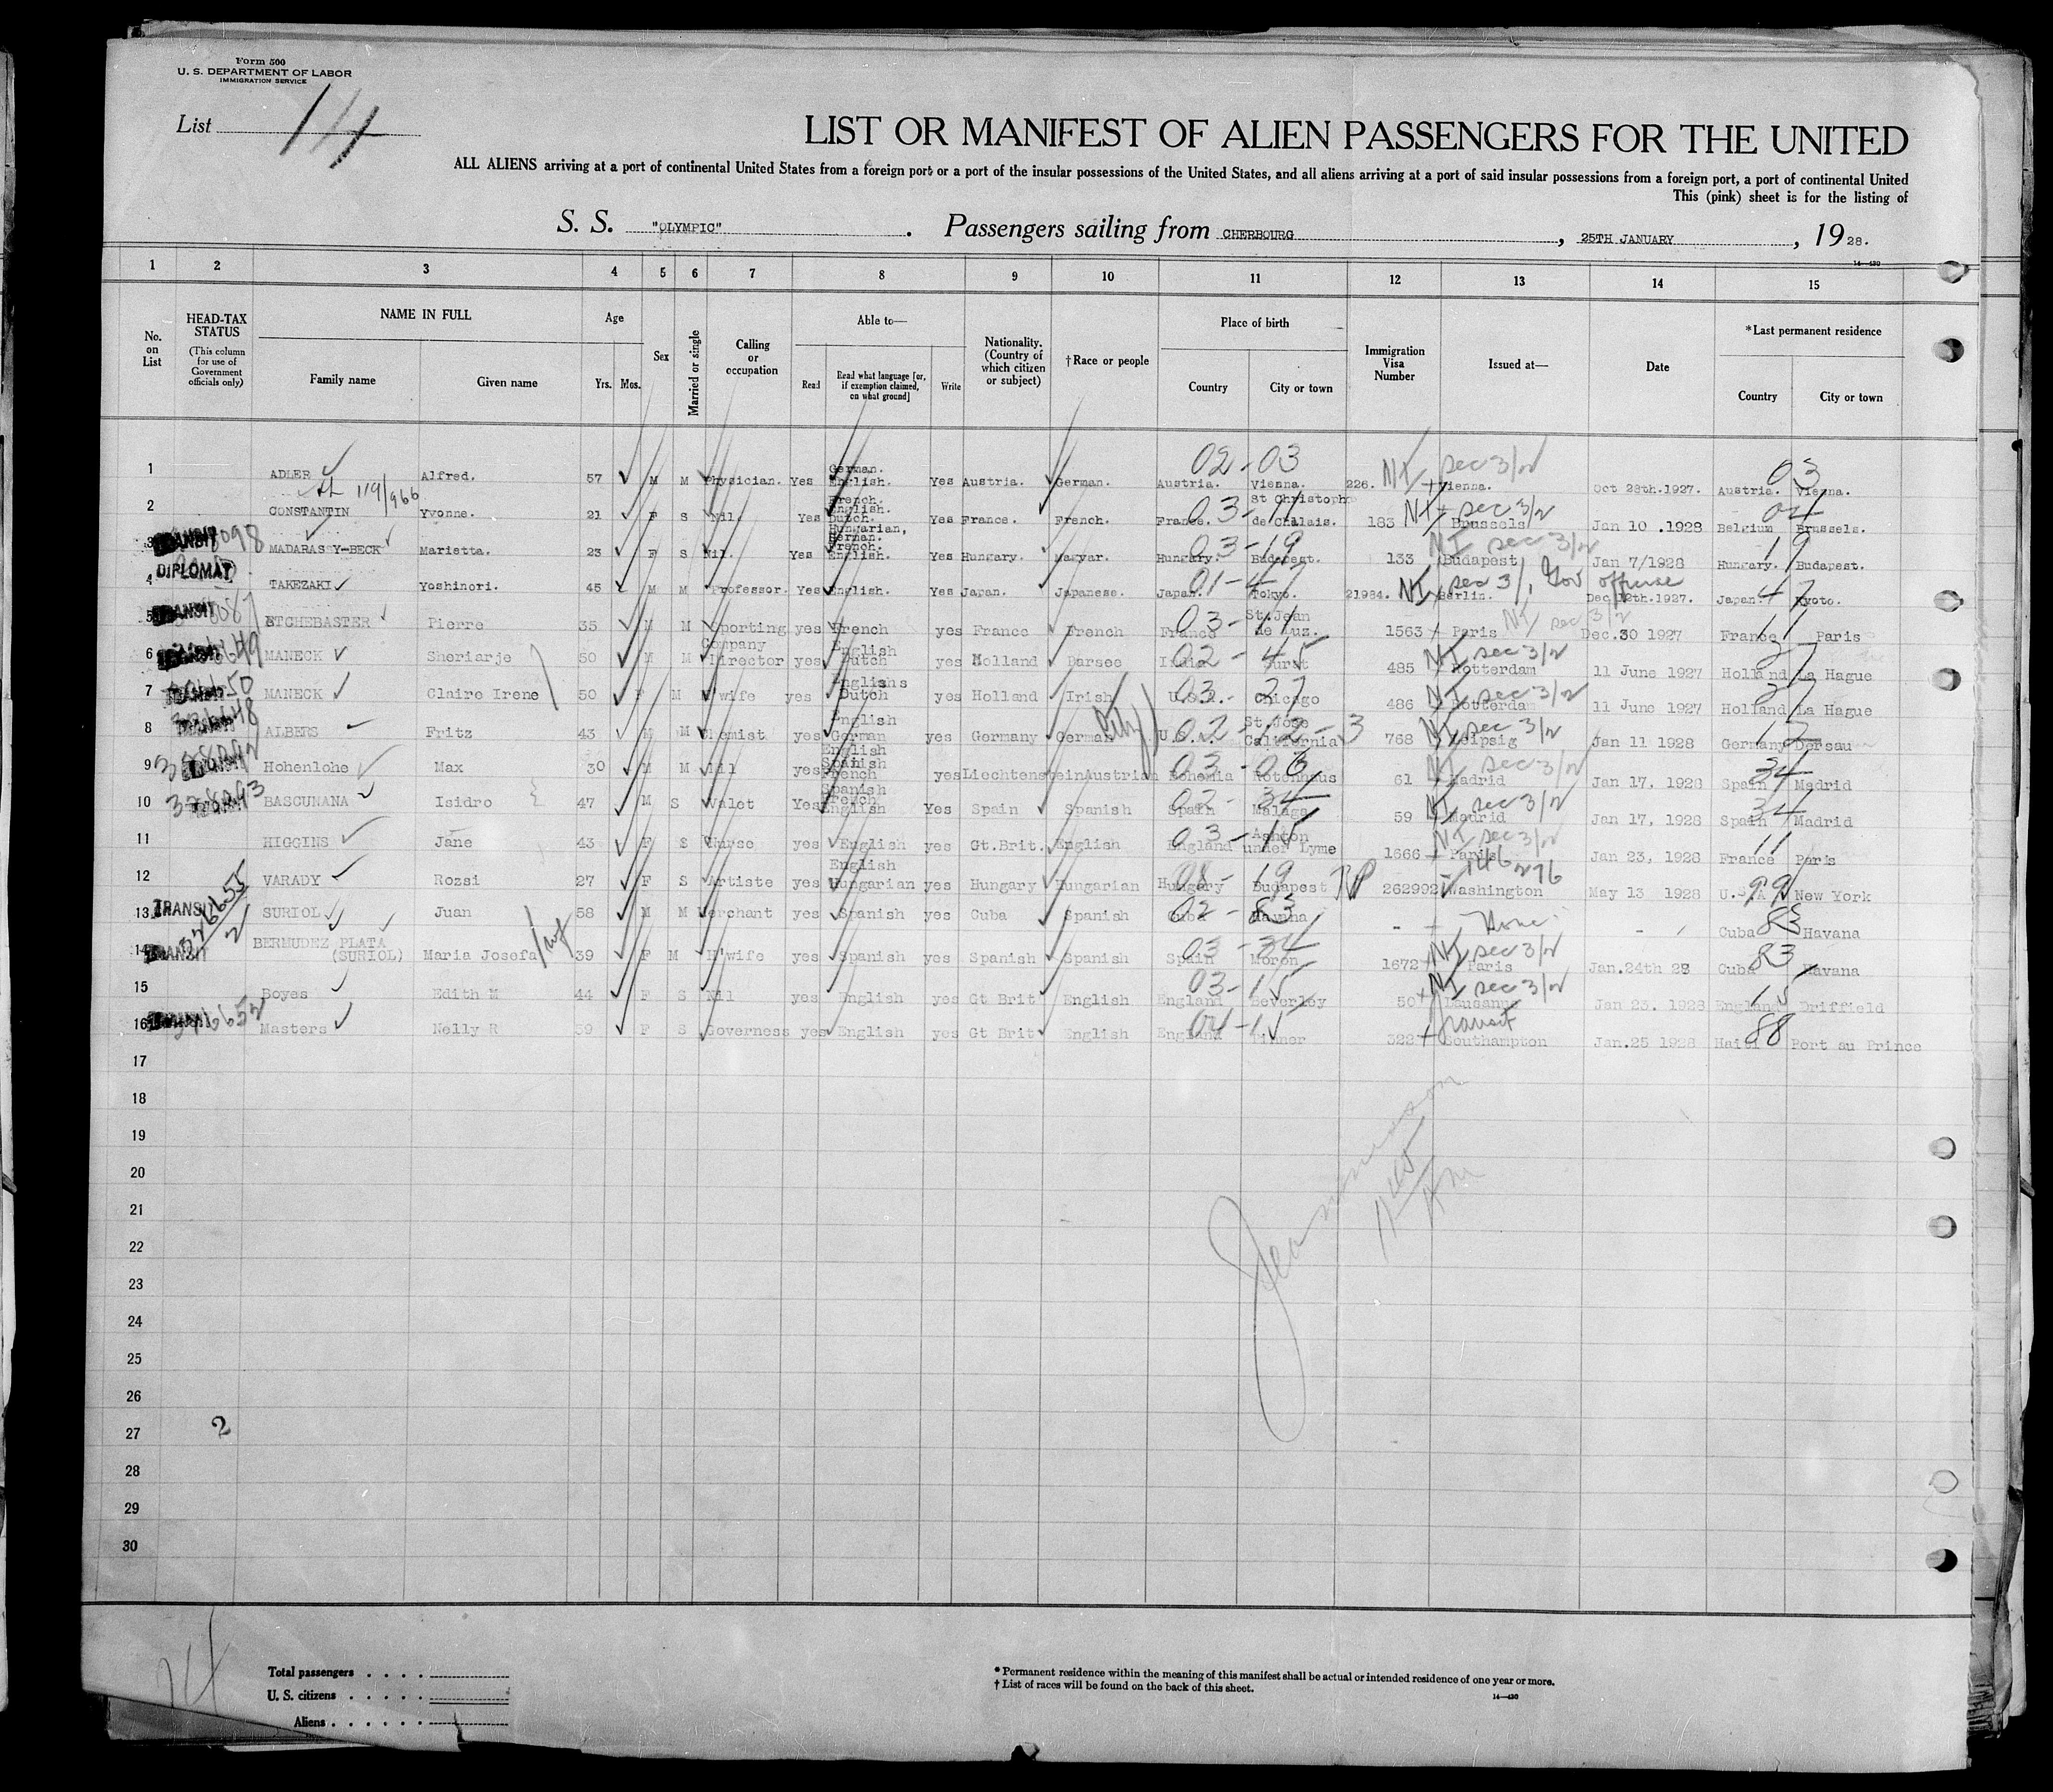 Form 500
U. S. DEPARTMENT OF LABOR
IMMIGRATION SERVICE
List 14
LIST OR MANIFEST OF ALIEN PASSENGERS FOR THE UNITED
ALL ALIENS arriving at a port of continental United States from a foreign port or a port of the insular possessions of the United States, and all aliens arriving at a port of said insular possessions from a foreign port, a port of continental United
This (pink) sheet is for the listing of
S. S. "OLYMPIC". Passengers sailing from CHERBOURG, 25TH JANUARY, 1928.
14—430
1 2 3 4 5 6 7 8 9 10 11 12 13 14 15
No. on List HEAD-TAX STATUS (This column for use of Government officials only) NAME IN FULL Family name Given name Age Yrs. Mos. Sex Married or single Calling or occupation Able to— Read Read what language [or, if exemption claimed, on what ground] Write Nationality. (Country of which citizen or subject) †Race or people Place of birth Country City or town Immigration Visa Number Issued at— Date *Last permanent residence Country City or town
02-03 NI sec 3/2 03
1 ADLER Alfred. 57 M M Physician. Yes German. English. Yes Austria. German. Austria. Vienna. 226. Vienna. Oct 28th.1927. Austria. Vienna.
119/966
03-11 NI sec 3/2 04
2 CONSTANTIN Yvonne. 21 F S Nil. Yes French. English. Dutch. Yes France. French. France. St Christoph de Chalais. 183 Brussels Jan 10 .1928 Belgium Brussels.
03-19 NI sec 3/2 19
3 MADARASSY-BECK Marietta. 23 F S Nil. Yes Hungarian, German. French. English. Yes Hungary. Magyar. Hungary. Budapest. 133 Budapest Jan 7/1928 Hungary. Budapest.
DIPLOMAT
01-47 NI sec 3/1 Gov 47
4 TAKEZAKI Yoshinori. 45 M M Professor. Yes English. Yes Japan. Japanese. Japan. Tokyo. 21984. Berlin. Dec 12th.1927. Japan. Kyoto.
03-11 NI sec 3/2 11
5 ETCHEBASTER Pierre 35 M M Sporting yes French yes France French France St.Jean de Luz. 1563 Paris Dec.30 1927 France Paris
02-45 NI sec 3/2 27
6 MANECK Sheriarje 50 M M Company Director yes English Dutch yes Holland Parsee India Surat 485 Rotterdam 11 June 1927 Holland La Hague
03-27 NI sec 3/2 27
7 MANECK Claire Irene 50 F M H'wife yes Englishs Dutch yes Holland Irish U.S.A. Chicago 486 Rotterdam 11 June 1927 Holland La Hague
02-12-3 NI sec 3/2 12
8 ALBERS Fritz 43 M M Chemist yes English German yes Germany German U.S.A. St.Jose California 768 Leipsig Jan 11 1928 Germany Dersau
03-06 NI sec 3/2 34
9 Hohenlohe Max 30 M M Nil yes English Spanish French yes Liechtenstein Austrian Bohemia Rotenhaus 61 Madrid Jan 17. 1928 Spain Madrid
328093
02-34 NI sec 3/2 34
10 BASCUNANA Isidro 47 M S Valet Yes Spanish French English Yes Spain Spanish Spain Malaga 59 Madrid Jan 17, 1928 Spain Madrid
03-15 NI sec 3/2 11
11 HIGGINS Jane 43 F S Nurse yes English yes Gt.Brit. English England Ashton under Lyme 1666 Paris Jan 23, 1928 France Paris
01-19 RP 146276 99
12 VARADY Rozsi 27 F S Artiste yes English Hungarian yes Hungary Hungarian Hungary Budapest 262902 Washington May 13 1928 U.S.A. New York
TRANSIT
02-83 None 83
13 SURIOL Juan 58 M M Merchant yes Spanish yes Cuba Spanish Cuba Havana - - - Cuba Havana
TRANSIT
03-34 NI sec 3/2 83
14 BERMUDEZ PLATA (SURIOL) Maria Josefa wf 39 F M H'wife yes Spanish yes Spanish Spanish Spain Moron 1672 Paris Jan.24th 28 Cuba Havana
03-15 NI sec 3/2 15
15 Boyes Edith M 44 F S Nil yes English yes Gt Brit English England Beverley 50 Lausanne Jan 23. 1928 England Driffield
transit 88
16 Masters Nelly R 59 F S Governess yes English yes Gt Brit English England Pinner 322 Southampton Jan.25 1928 Haiti Port au Prince
17
18
19
20
21
22
23
24
25
26
27 2
28
29
30
Total passengers
U. S. citizens
Aliens
* Permanent residence within the meaning of this manifest shall be actual or intended residence of one year or more.
† List of races will be found on the back of this sheet.
14—430